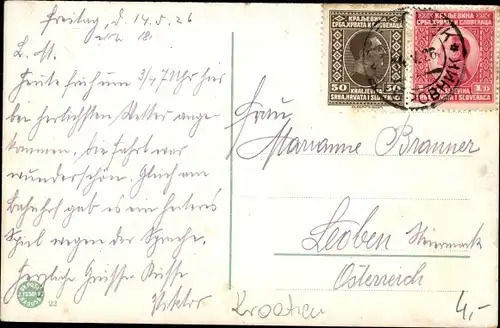 Freitag, d. 14.5.26
L. M.
Heute früh um 3/4 7 Uhr hier
bei herrlichstem Wetter ange-
kommen. Die Fahrt war
wunderschön. Gleich am
Bahnhof gab es ein heiteres
Spiel wegen der Sprache.
Herzliche Grüsse Küsse
Viktor
Frau
Marianne Branner
Leoben Steiermark
Österreich
Kroatien
4,-
22
КРАЉЕВИНА
СРБА, ХРВАТА И СЛОВЕНАЦА
50 KRALJEVINA 50
SRBA, HRVATA I SLOVENACA
КРАЉЕВИНА
СРБА, ХРВАТА И СЛОВЕНАЦА
KRALJEVINA 1 D
SRBA, HRVATA I SLOVENACA